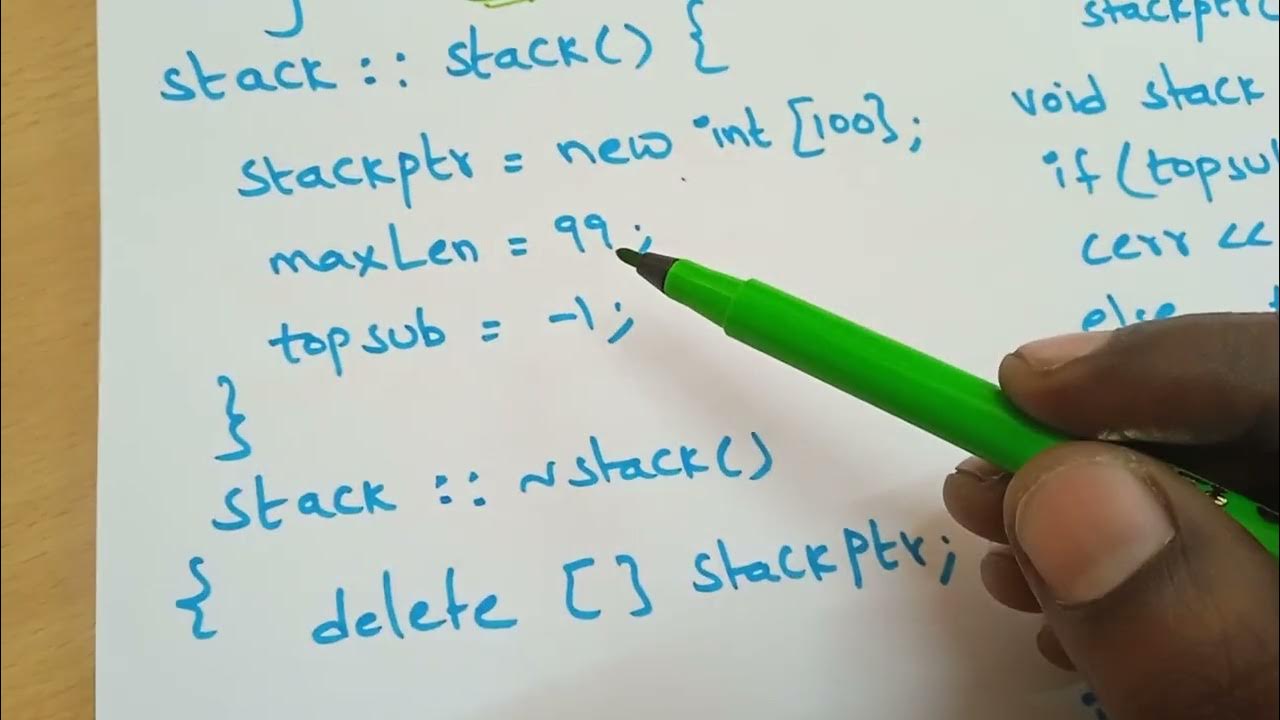 }
stack :: stack() {
stackptr = new int [100];
maxLen = 99;
topsub = -1;
}
stack :: ~stack()
{ delete [] stackptr;
stackptr(
void stack
if (topsu
cerr <<
else